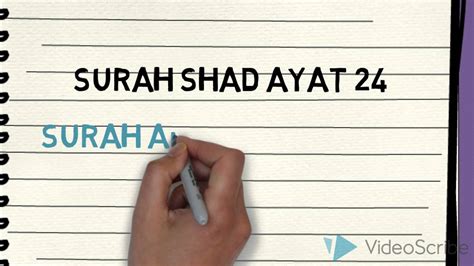 SURAH SHAD AYAT 24
SURAH A
VideoScribe